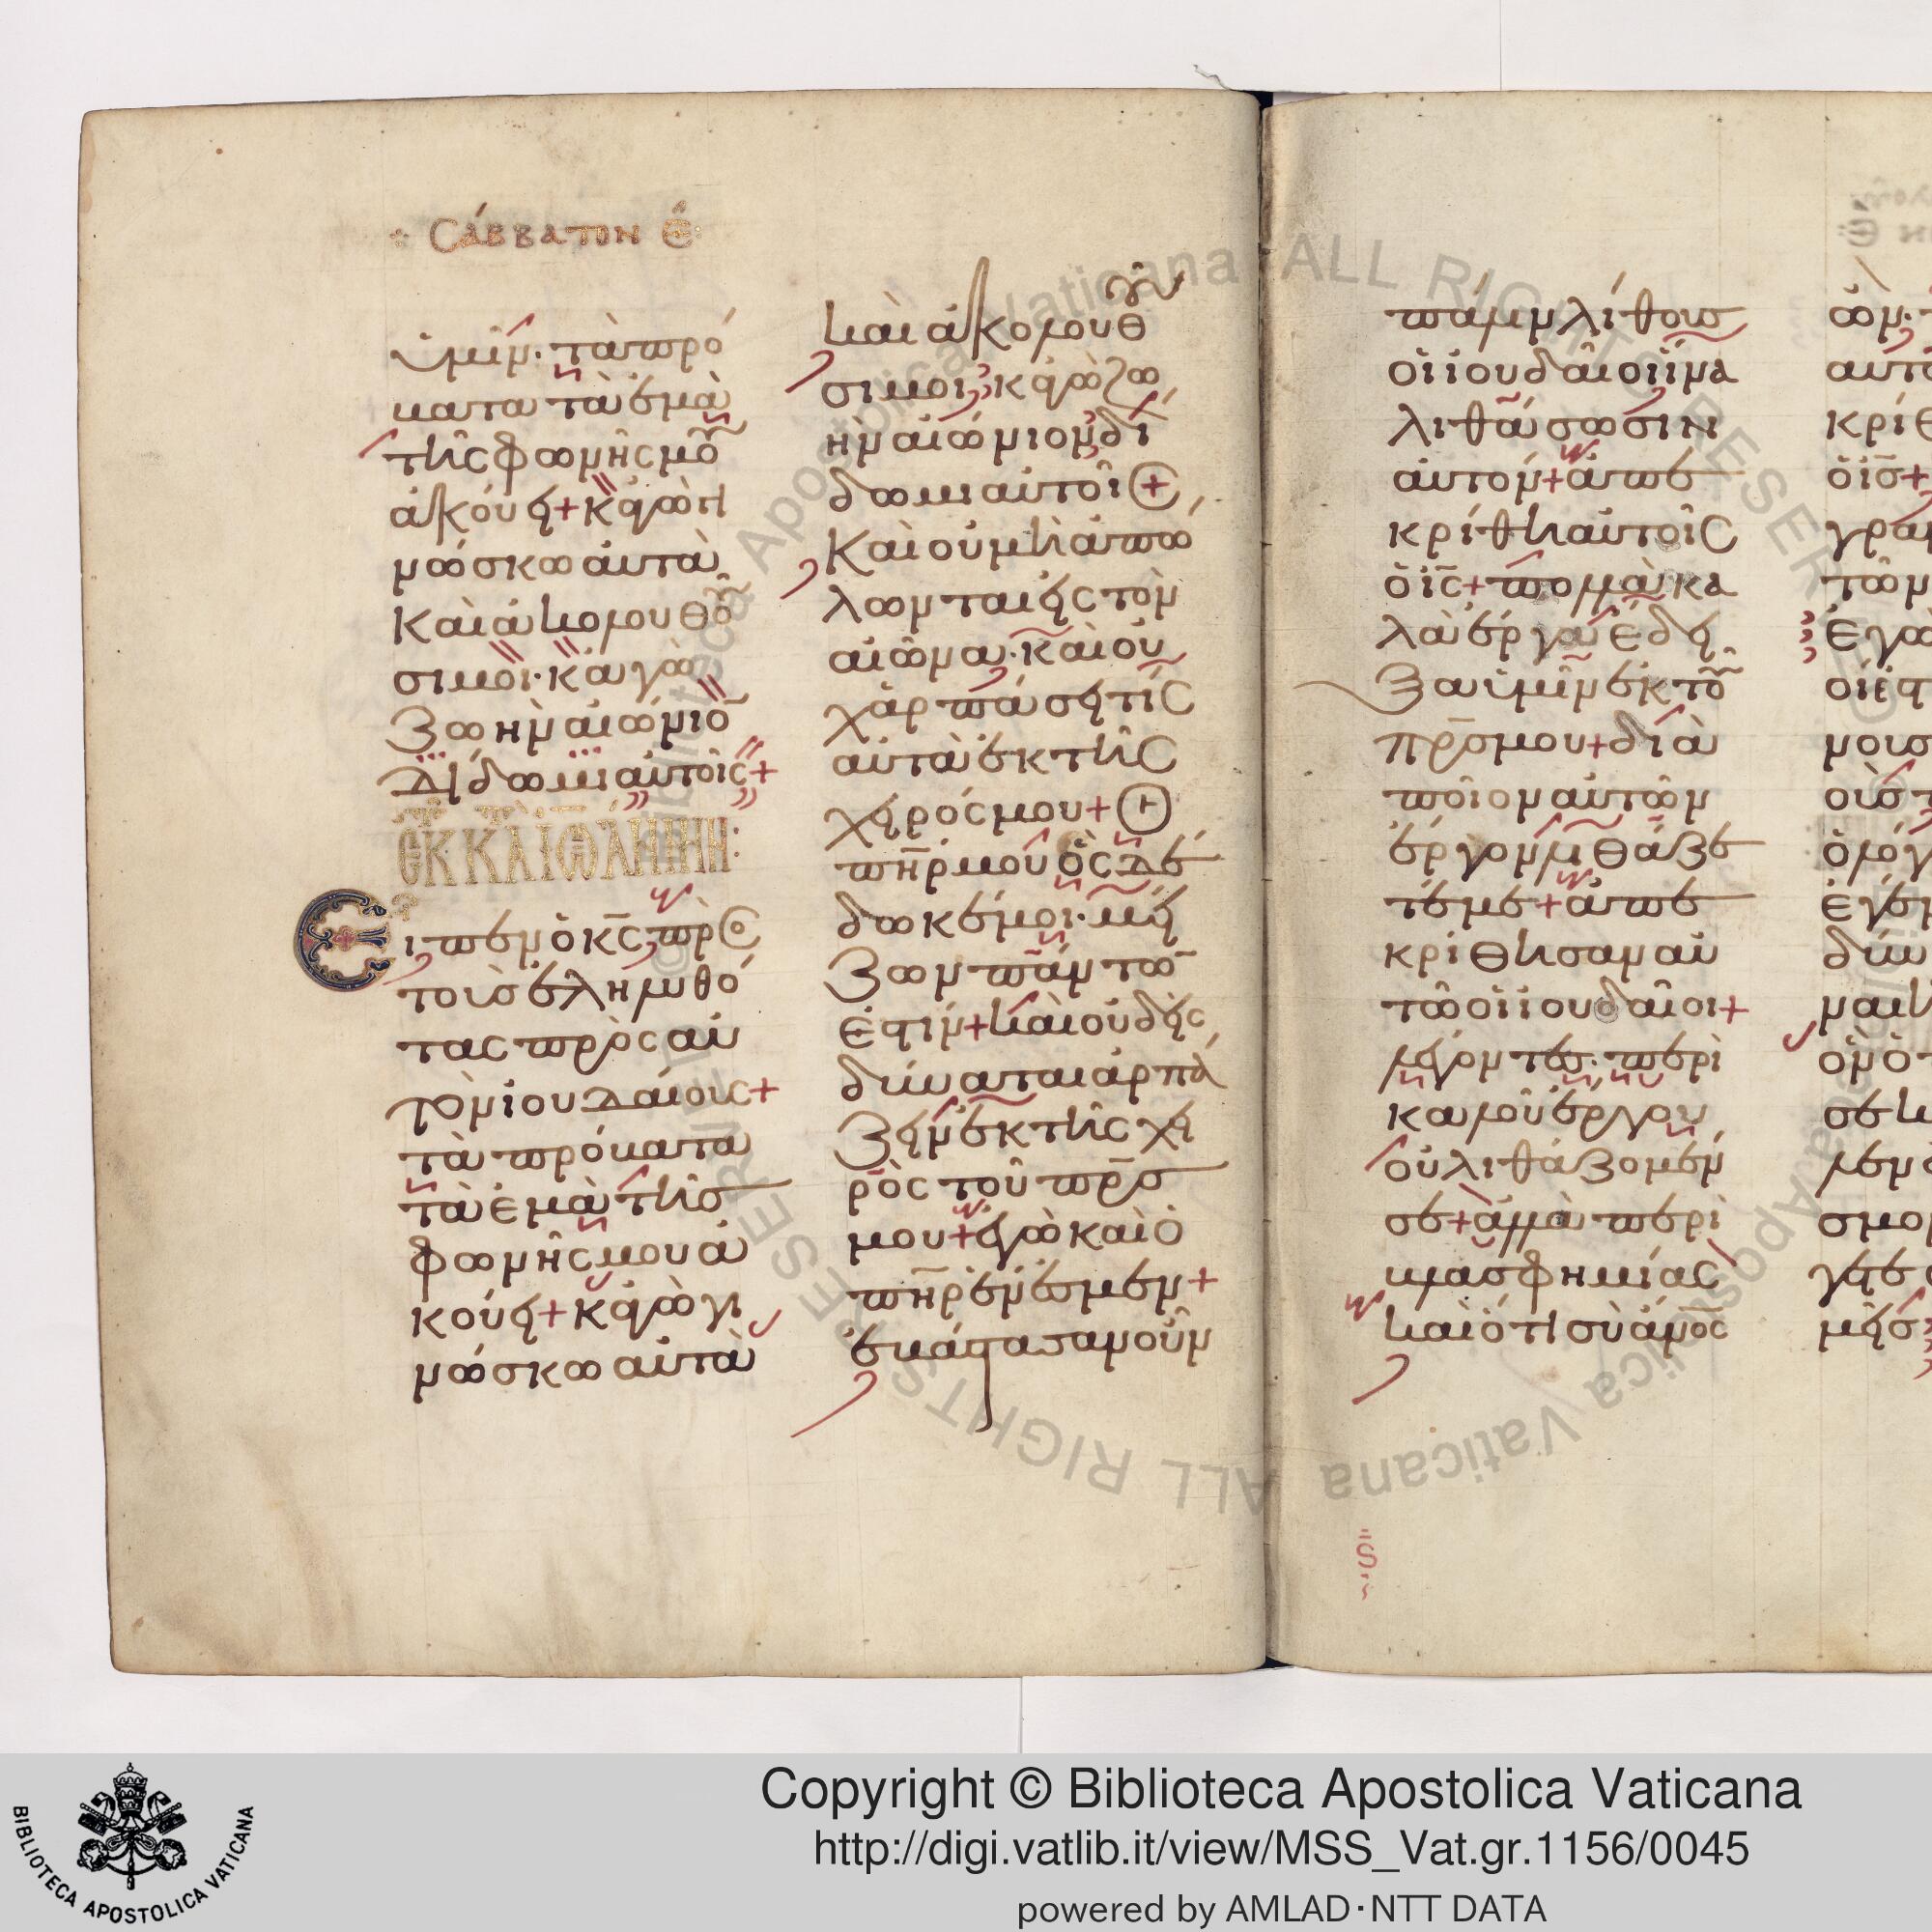 Σάββατον ε̂
ὑμῖν· τὰ πρό
βατα τὰ ἐμὰ
τῆς φωνῆς μοῦ
ἀκούει + κἀγὼ γι
νώσκω αὐτὰ
Καὶ ἀκολουθοῦ
σι μοι· κἀγὼ
ζωὴν αἰώνιον
δίδωμι αὐτοῖς +
ἐκ κατὰ Ἰωάννην:
Εἶπεν ὁ κ̅ς̅ πρὸ
τοὺς ἐληλυθό
τας πρὸς αὐ
τὸν ἰουδαίους +
τὰ πρόβατα
τὰ ἐμὰ τῆς
φωνῆς μου ἀ
κούει + κἀγὼ γι
νώσκω αὐτὰ
καὶ ἀκολουθοῦ
σι μοι κἀγὼ ζω
ὴν αἰώνιον δί
δωμι αὐτοῖς +
Καὶ οὐ μὴ ἀπό
λωνται εἰς τὸν
αἰῶνα· καὶ οὐ
χ ἁρπάσει τίς
αὐτὰ ἐκ τῆς
χειρός μου + Ὁ
π̅η̅ρ̅ μου ὃς δέ
δωκέ μοι· μεί
ζων πάντων
ἐστίν + καὶ οὐδεὶς
δύναται ἁρπά
ζειν ἐκ τῆς χει
ρὸς τοῦ π̅ρ̅ς̅
μου + ἐγὼ καὶ ὁ
π̅η̅ρ̅ ἕν ἐσμεν +
ἐβάστασαν οὖν
πάλιν λίθους
οἱ ἰουδαῖοι ἵνα
λιθάσωσιν
αὐτόν + ἀπε
κρίθη αὐτοῖς
ὁ ι̅ς̅ + πολλὰ κα
λὰ ἔργα ἔδει
ξα ὑμῖν ἐκ τοῦ
π̅ρ̅ς̅ μου + διὰ
ποῖον αὐτῶν
ἔργον λιθάζε
τέ με + ἀπε
κρίθησαν αὐ
τῶ οἱ ἰουδαῖοι +
λέγοντες· περὶ
καλοῦ ἔργου
οὐ λιθάζομέν
σε + ἀλλὰ περὶ
βλασφημίας
καὶ ὅτι σὺ ἄν̅ο̅ς̅
Copyright © Biblioteca Apostolica Vaticana
http://digi.vatlib.it/view/MSS_Vat.gr.1156/0045
powered by AMLAD·NTT DATA
BIBLIOTECA APOSTOLICA VATICANA